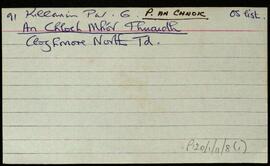 91 Killannin Par. G. P. AN CHNOIC OS list.
An Chloch Mhór Thuaidh
Cloghmore North Td.
P120/1/11/8(1)